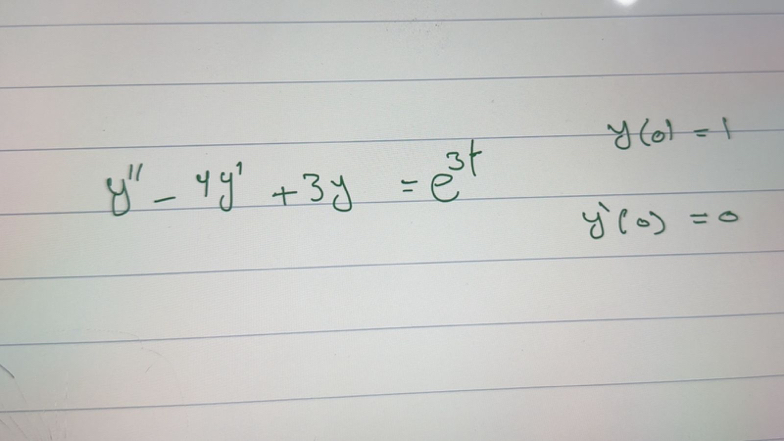 y'' - 4y' + 3y = e^{3t}
y(0) = 1
y'(0) = 0